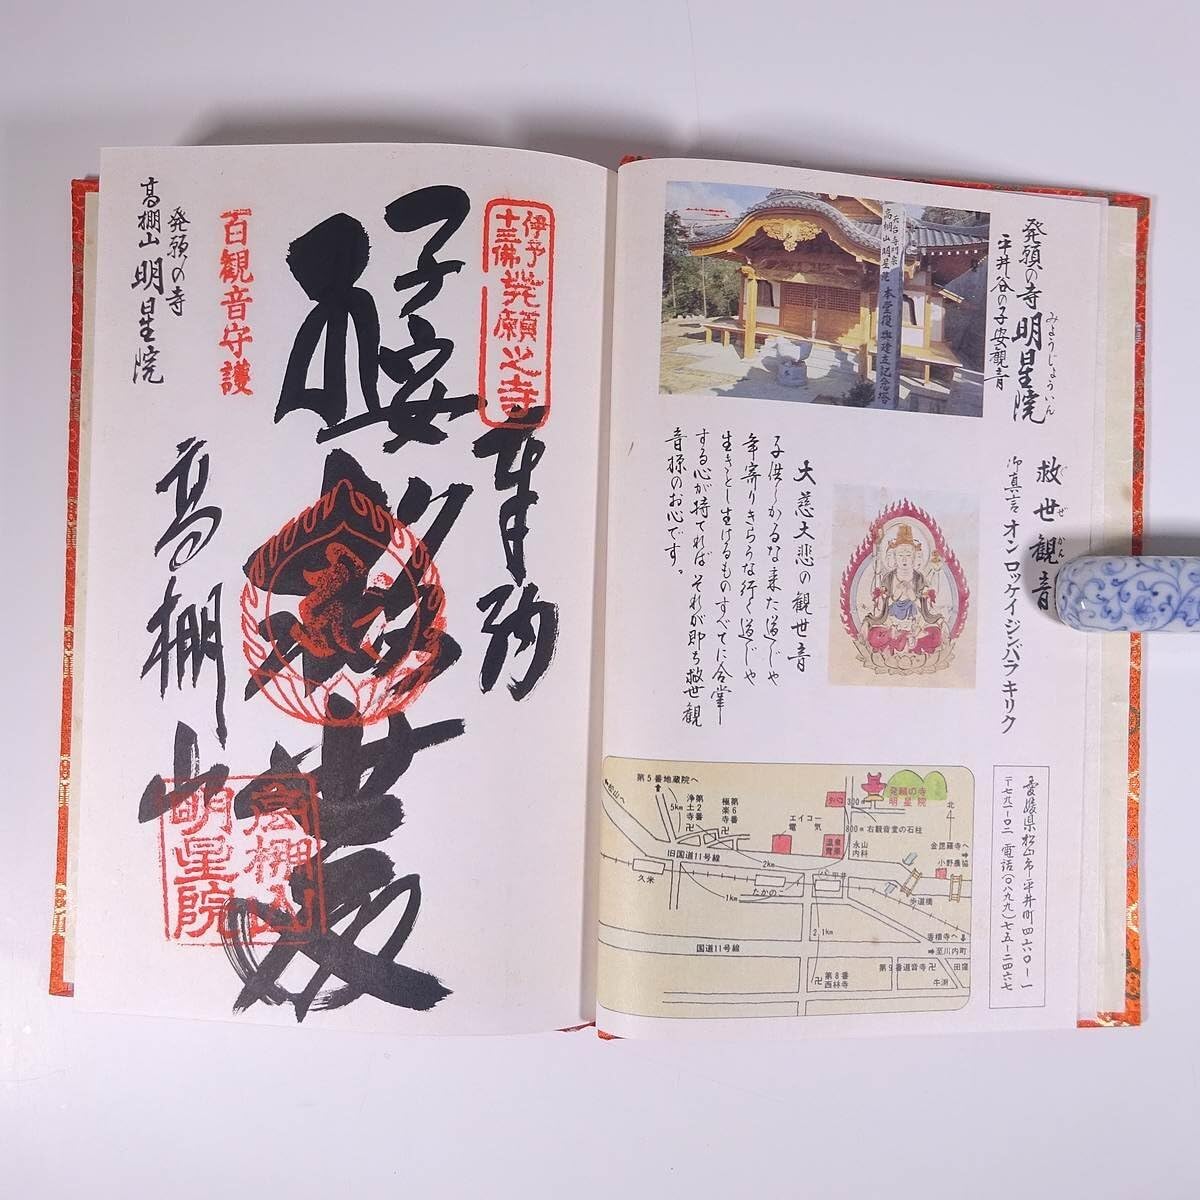 発願の寺 明星院
みょうじょういん
平井谷の子安観音
天台寺門宗
高棚山 明星院 本堂復興建立記念塔
救世観音
ぐぜかん
御真言 オン ロッケイ ジンバラ キリク
大慈大悲の観世音
子供しかるな来た道じゃ
年寄りきらうな行く道じゃ
生きとし生けるものすべてに合掌
する心が持てれば それが即ち救世観
音様のお心です。
愛媛県松山市平井町四六〇-一
〒七九一-〇二 電話(〇八九九)七五-二四六七
第5番地蔵院へ
松山へ
5km
第2番
浄土寺
第6番
極楽寺
エイコー
電気
タバコ
300m
発願の寺
明星院
北
800m 右観音堂の石柱
永山
内科
金毘羅寺へ
小野農協
旧国道11号線
2km
久米
たかのこ
1km
平井
歩道橋
2.1km
香積寺へ
至川内町
国道11号線
第8番
西林寺
第9番道音寺
田窪
牛渕
伊予
十三佛 発願之寺
奉拝
子安
救世殿
百観音守護
発願の寺
高棚山 明星院
高棚山
高棚山
明星院